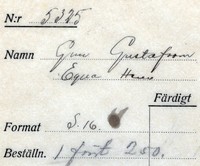 N:r 5325
Namn Gun Gustafsson
Färdigt
Format S. 16.
Beställn. 1 fort 2 50.